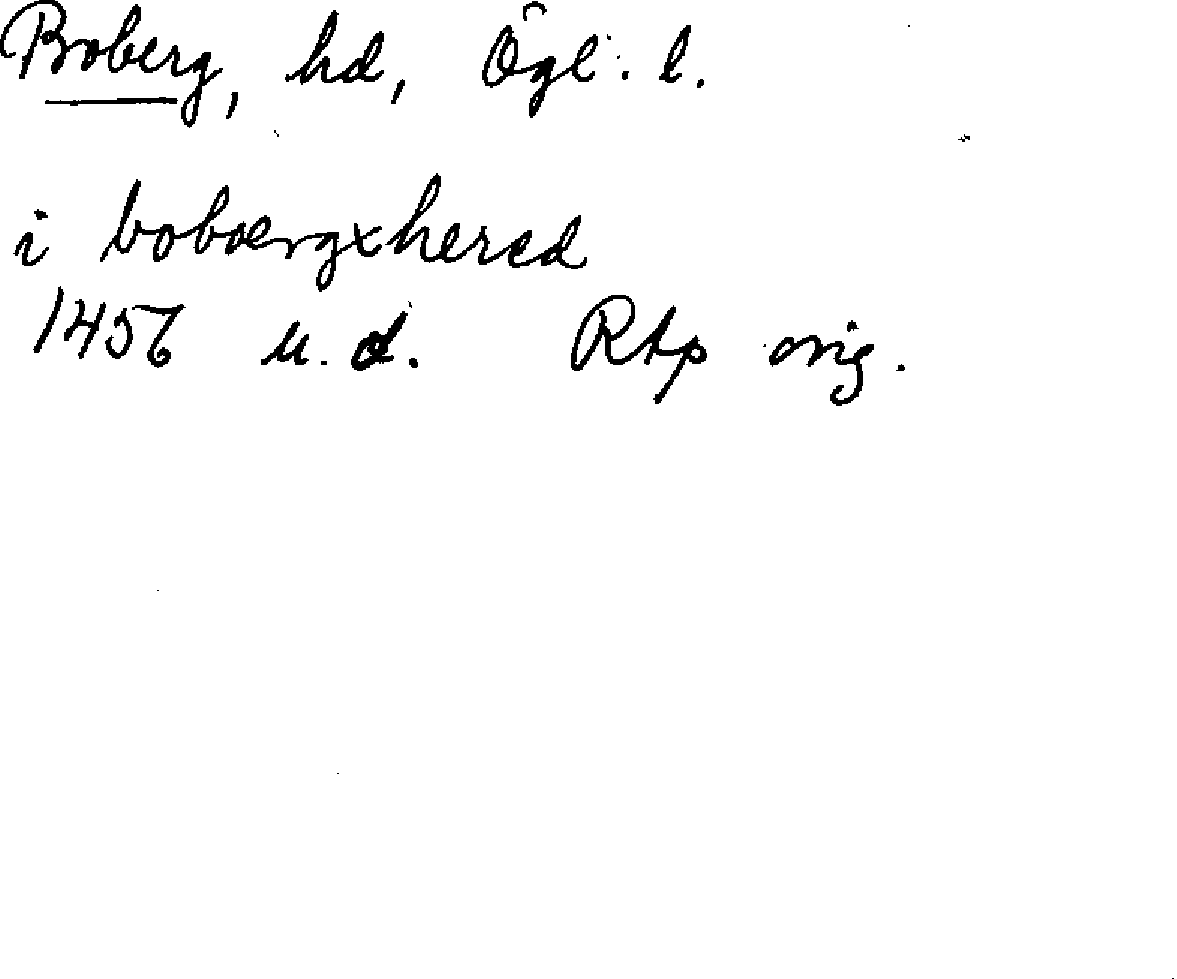 Boberg, hd, Ögl. l.
i bobærgxhered
1456 u.d. RAp orig.